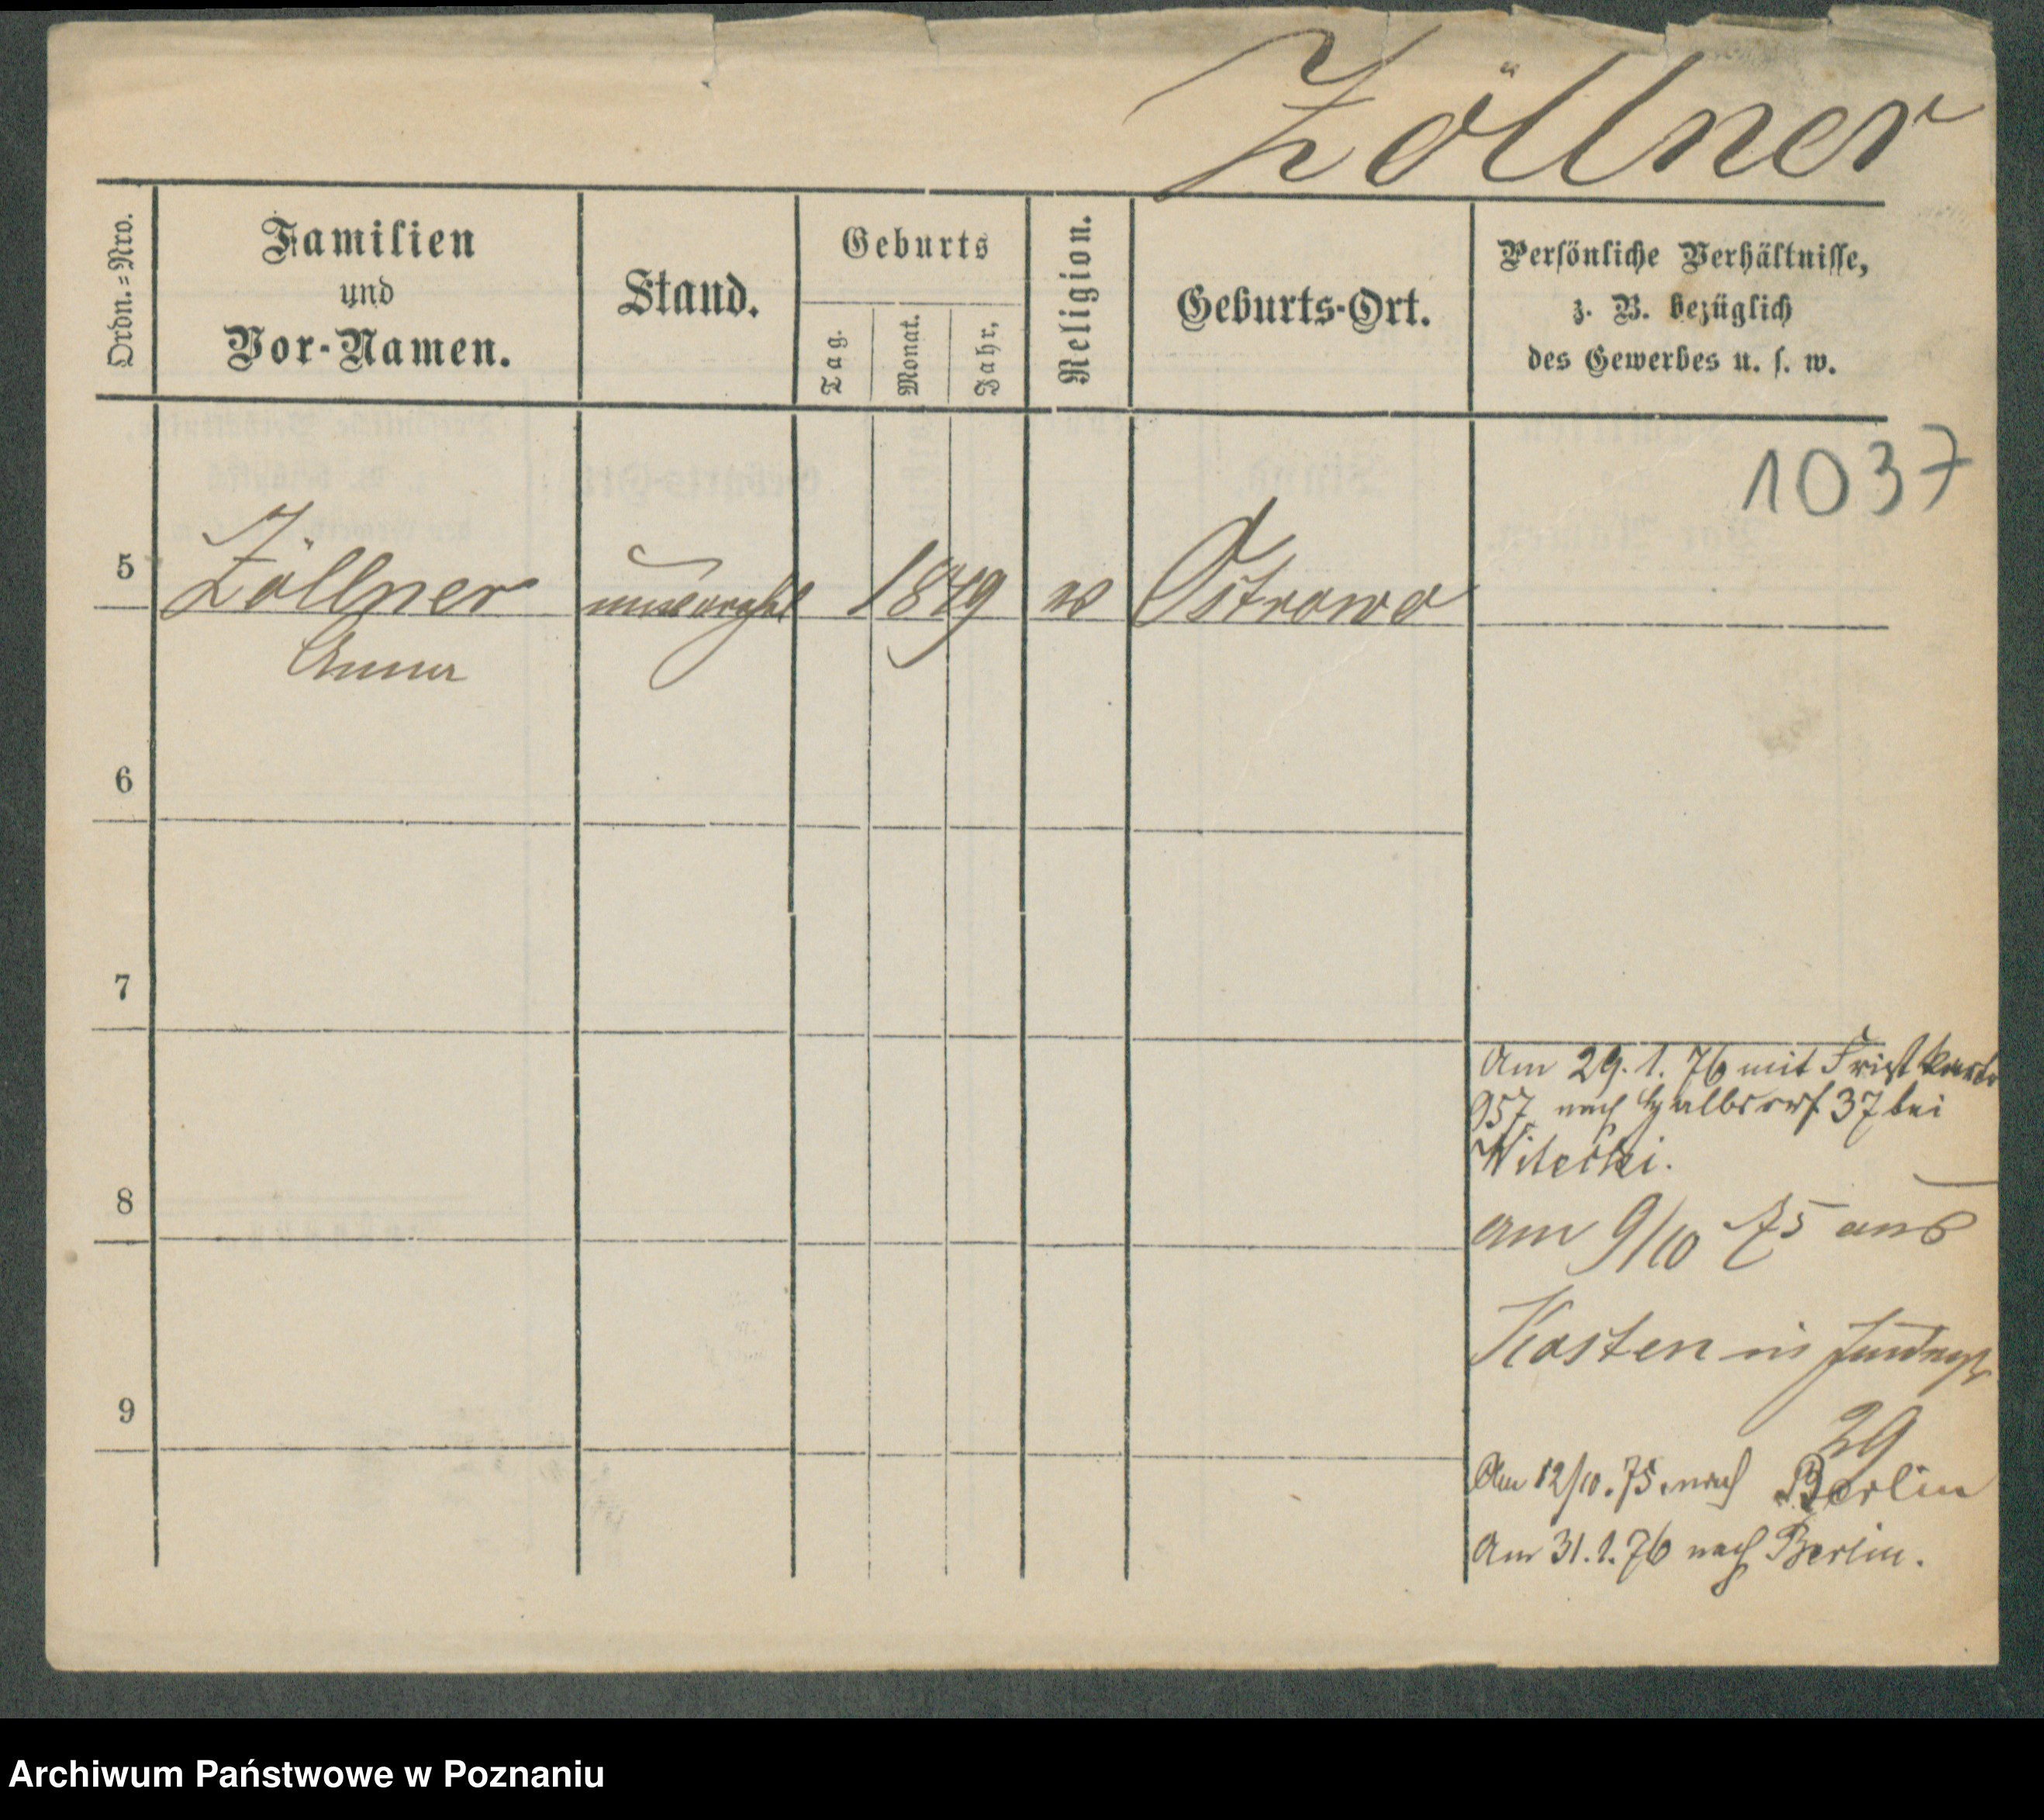 Zöllner
Ordn.-Nro.
Familien
und
Vor-Namen.
Stand.
Geburts
Tag.
Monat.
Jahr.
Religion.
Geburts-Ort.
Persönliche Verhältnisse,
z. B. bezüglich
des Gewerbes u. s. w.
1037
5 Zöllner 1849 Ostrowo
Anna
6
7
Am 29. 1. 76 mit
957 nach Halbdorf 37 bei
8
am 9/10 75 aus
Kosten in
9
29
Am 12/10. 75. nach Berlin
Am 31. 1. 76 nach Berlin.
Archiwum Państwowe w Poznaniu